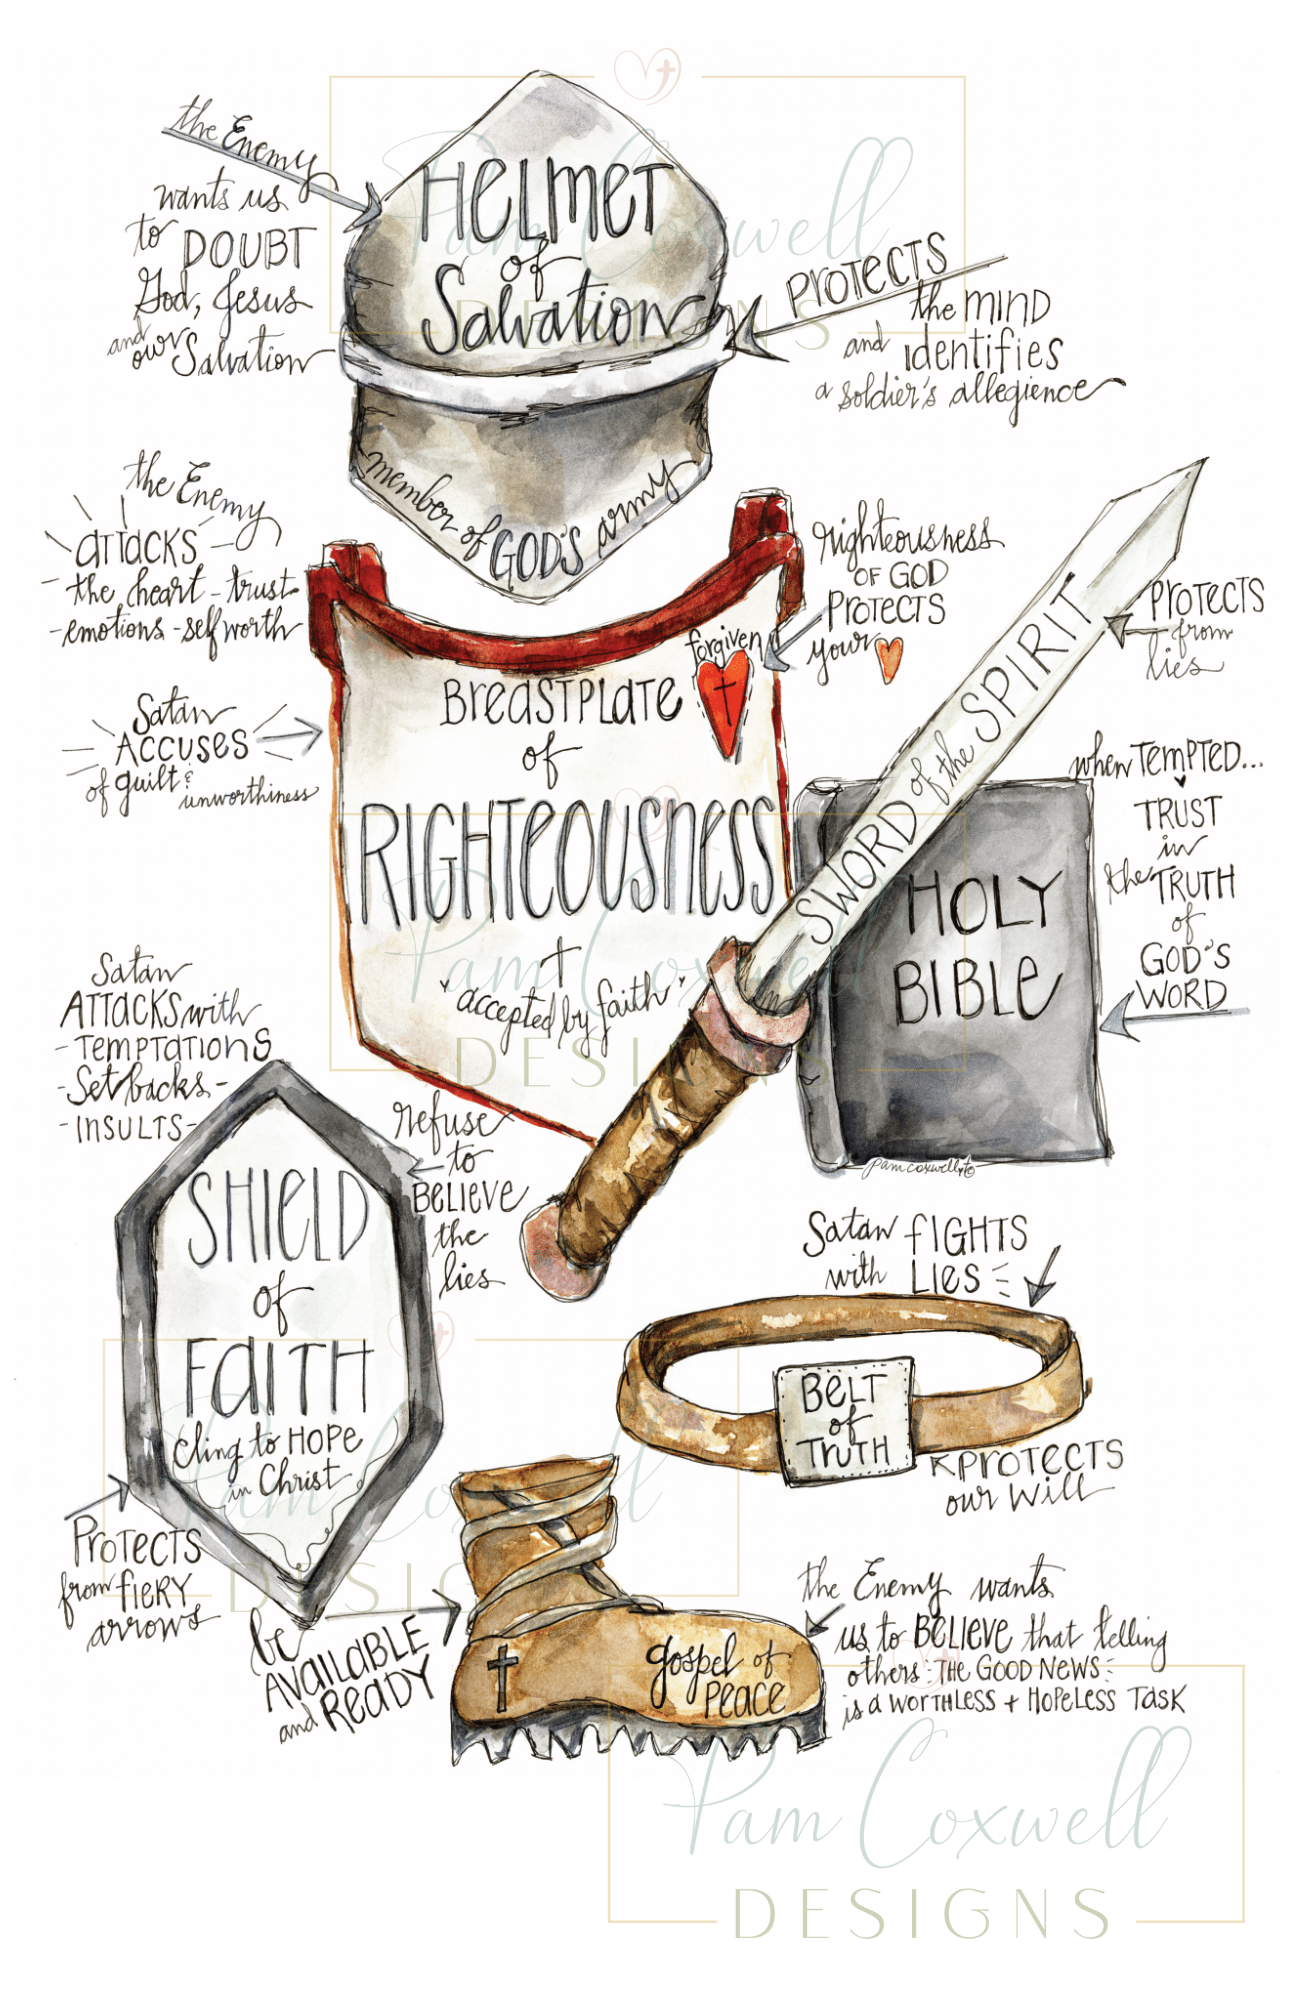 the Enemy
wants us
to DOUBT
God, Jesus
and our Salvation
HELMET
of
Salvation
PROTECTS
the MIND
and identifies
a soldier's allegience
member of GOD'S army
the Enemy
ATTACKS
the heart - trust
- emotions - self worth
Satan
ACCUSES
of guilt &
unworthiness
forgiven
BREASTPLATE
of
RIGHTEOUSNESS
accepted by faith
righteousness
OF GOD
PROTECTS
your
SWORD of the SPIRIT
PROTECTS
from
lies
HOLY
BIBLE
pam coxwell
when TEMPTED...
TRUST
in
the TRUTH
of
GOD'S
WORD
Satan
ATTACKS with
- TEMPTATIONS
- Set backs -
- INSULTS -
SHIELD
of
FAITH
cling to HOPE
in Christ
refuse
to
BELIEVE
the
lies
PROTECTS
from FIERY
arrows
Satan FIGHTS
with LIES
BELT
of
TRUTH
PROTECTS
our Will
be
AVAILABLE
and READY
gospel of
PEACE
the Enemy wants
us to BELIEVE that telling
others - THE GOOD NEWS -
is a WORTHLESS + HOPELESS TASK
Pam Coxwell
DESIGNS
Pam Coxwell
DESIGNS
Pam Coxwell
DESIGNS
Pam Coxwell
DESIGNS